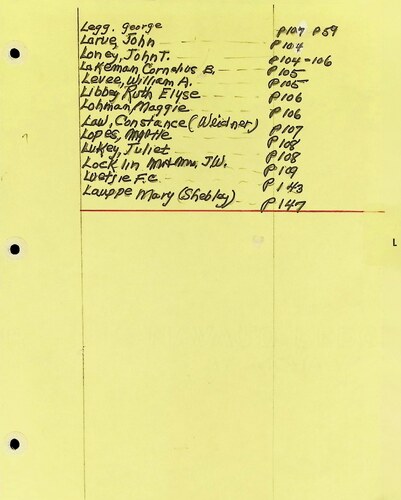 Legg, George P107 P59
Larue, John P104
Loney, John T. P104-106
Lakeman Cornelius B. P105
Levee, William A. P105
Libbey Ruth Elyse P106
Lohman, Maggie P106
Law, Constance (Weidner) P107
Lopes, Myrtle P108
Lukey, Juliet P108
Locklin J.W. P109
F.C. P143
Lauppe Mary (Shebley) P147
L